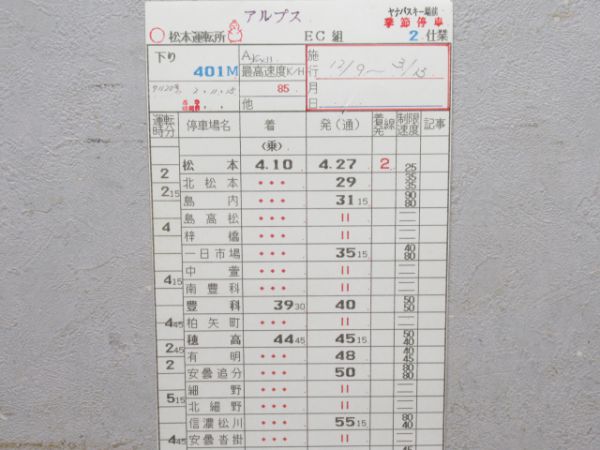 アルプス
ヤナバスキー場前
季節停車
松本運転所
EC組
2仕業
下り
401M
最高速度K/H
85
他
施行月日
12/9~3/
運転時分
停車場名
着
発(通)
着発線
制限速度
記事
(乗)
松本 4.10 4.27 2 25
2
北松本 ・・・ 29 35 35
2 15
島内 ・・・ 31 15 90 80
島高松 ・・・ 〃
4
梓橋 ・・・ 〃
一日市場 ・・・ 35 15 40 80
中萱 ・・・ 〃
4 15
南豊科 ・・・ 〃
豊科 39 30 40 50 50
4 45
柏矢町 ・・・ 〃
穂高 44 45 45 15 50 40
2 45
有明 ・・・ 48 40 45
2
安曇追分 ・・・ 50 80 80
細野 ・・・ 〃
5 15
北細野 ・・・ 〃
信濃松川 ・・・ 55 15 80 40
4 45
安曇沓掛 ・・・ 〃